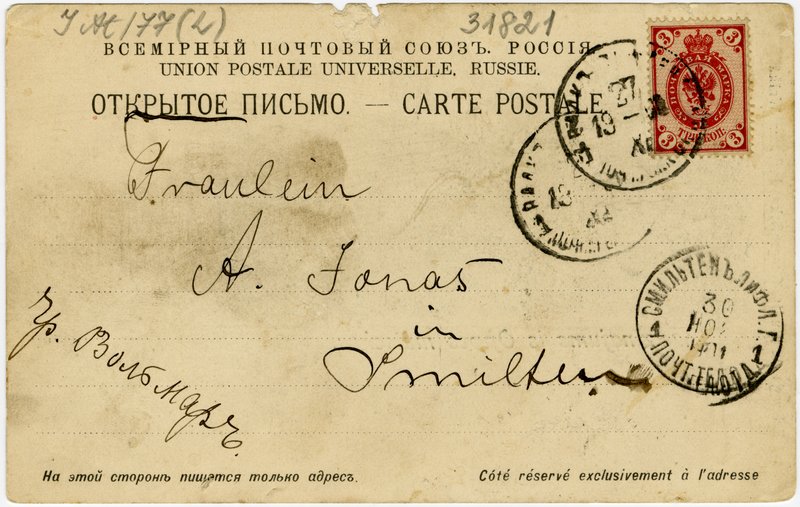 I At/77(2)
31821
ВСЕМІРНЫЙ ПОЧТОВЫЙ СОЮЗЪ. РОССІЯ
UNION POSTALE UNIVERSELLE, RUSSIE.
ОТКРЫТОЕ ПИСЬМО. — CARTE POSTALE
ПОЧТОВАЯ МАРКА
3 3
3 ТРИ КОП. 3
27
19
13
Fräulein
A. Jonas
in
Smilten
чр. Вольмаръ.
СМИЛЬТЕНЪ ЛИФЛ. Г.
30
НОЯ
1901
1 1
ПОЧТ.
На этой сторонѣ пишется только адресъ.
Côté réservé exclusivement à l'adresse